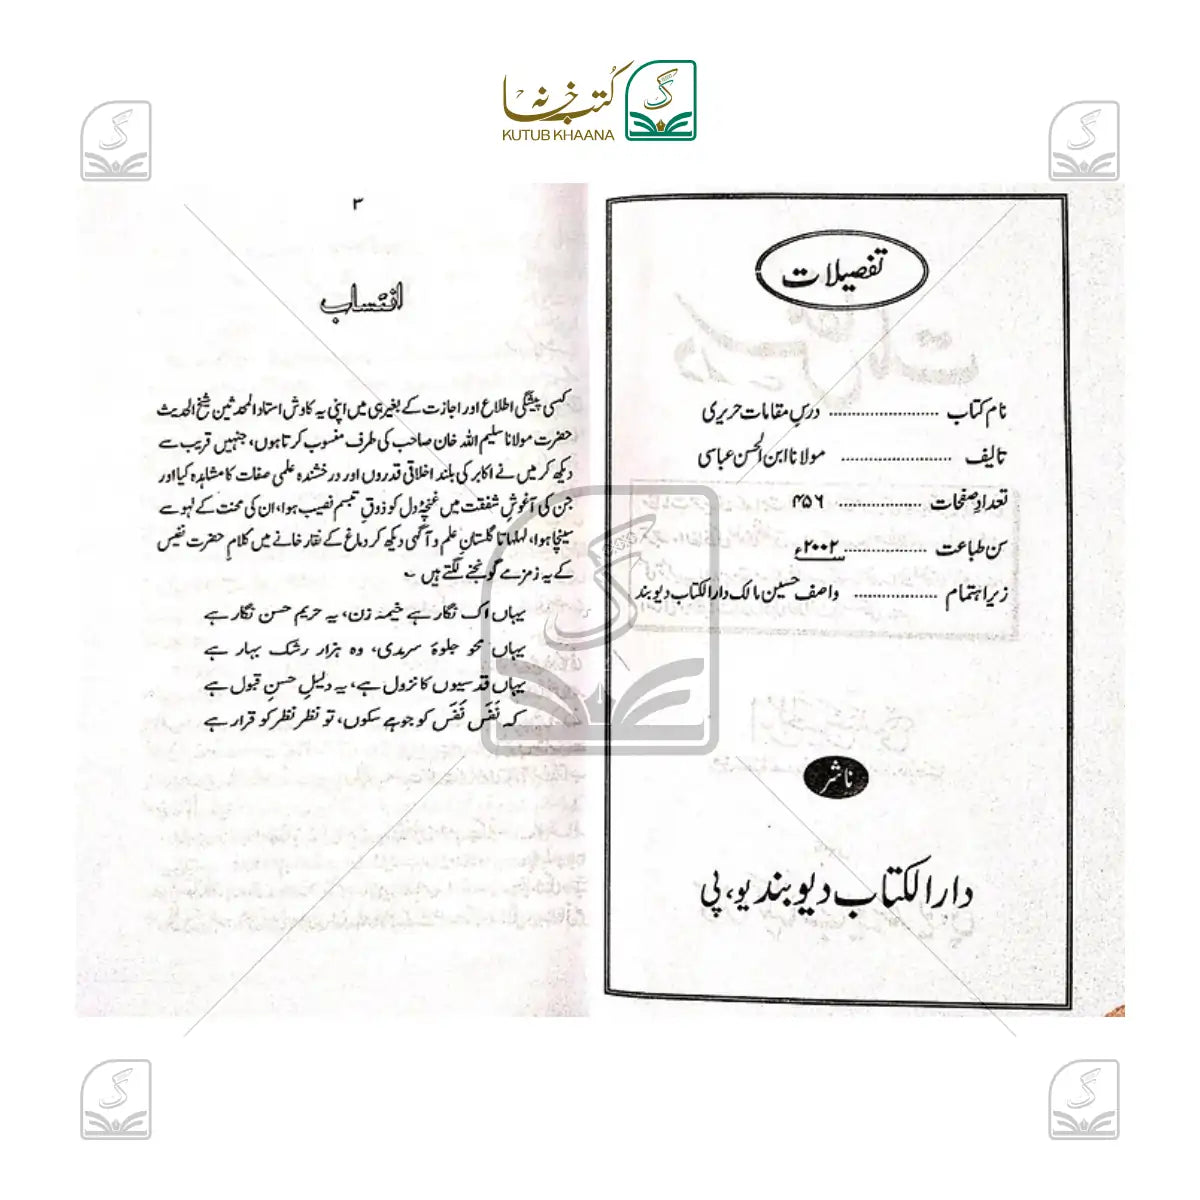 کتب خانہ
KUTUB KHAANA
تفصیلات
نام کتاب ........................ درسِ مقامات حریری
تالیف ........................ مولانا ابن الحسن عباسی
تعدادِ صفحات .................. ۴۵۶
سن طباعت .................. ۲۰۰۲ء
زیر اہتمام .................. واصف حسین مالک دارالکتاب دیوبند
ناشر
دارالکتاب دیوبند یو، پی
۳
انتساب
کسی پیشگی اطلاع اور اجازت کے بغیر ہی میں اپنی یہ کاوش استاد المحدثین شیخ الحدیث
حضرت مولانا سلیم اللہ خان صاحب کی طرف منسوب کرتا ہوں، جنہیں قریب سے
دیکھ کر میں نے اکابر کی بلند اخلاقی قدروں اور درخشندہ علمی صفات کا مشاہدہ کیا اور
جن کی آغوشِ شفقت میں غنچۂ دل کو ذوقِ تبسم نصیب ہوا، ان کی محنت کے لہو سے
سینچا ہوا، لہلہاتا گلستانِ علم و آگہی دیکھ کر دماغ کے نقار خانے میں کلامِ حضرت نفیس
کے یہ زمزمے گونجنے لگتے ہیں ؎
یہاں اک نگار ہے خیمہ زن، یہ حریم حسن نگار ہے
یہاں محو جلوۂ سرمدی، وہ ہزار رشک بہار ہے
یہاں قدسیوں کا نزول ہے، یہ دلیلِ حسنِ قبول ہے
کہ نَفَس نَفَس کو جو ہے سکوں، تو نظر نظر کو قرار ہے